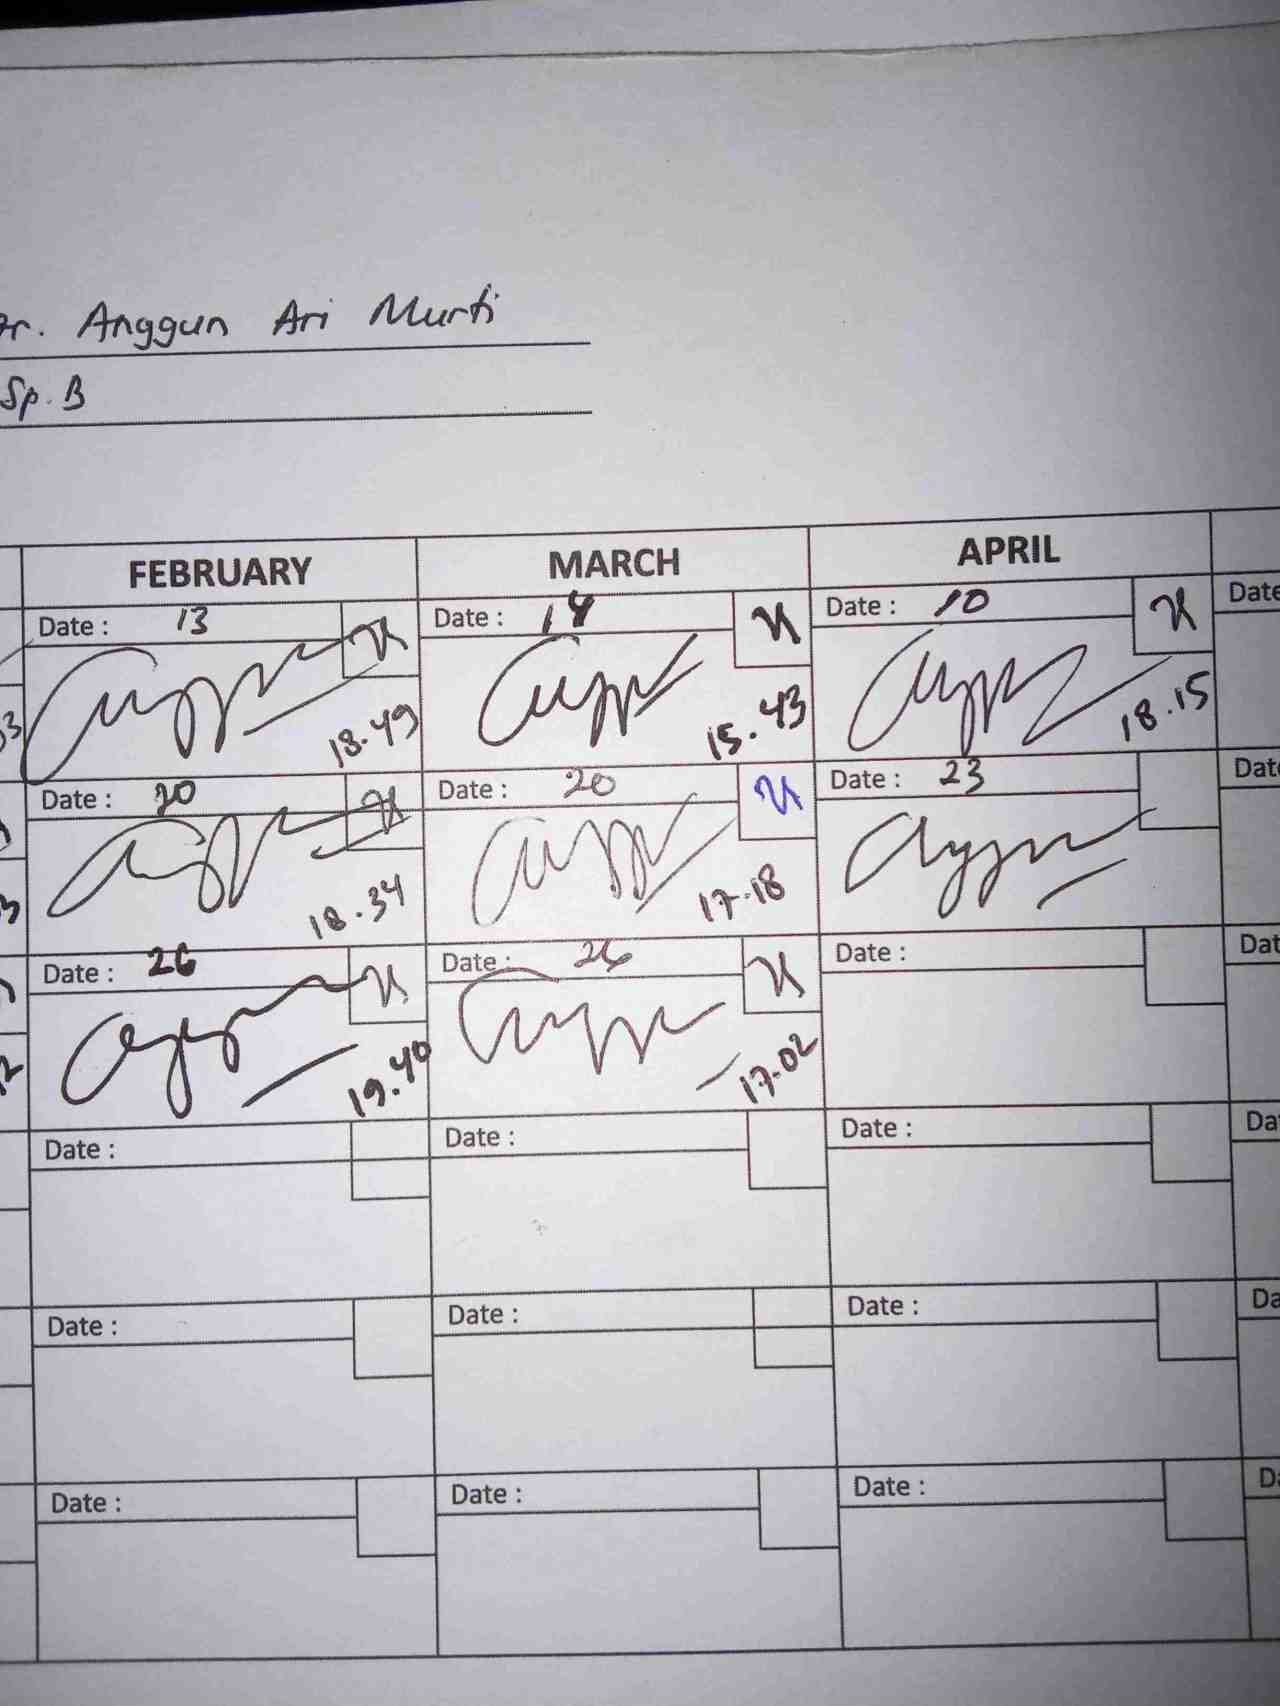 Dr. Anggun Ari Murti
Sp. B
FEBRUARY MARCH APRIL
Date : 13 Date : 14 Date : 10 Date
18.49 15.43 18.15
Date : 20 Date : 20 Date : 23 Date
18.34 17.18
Date : 26 Date : 26 Date : Dat
19.40 17.02
Date : Date : Date : Da
Date : Date : Date : Da
Date : Date : Date : Da